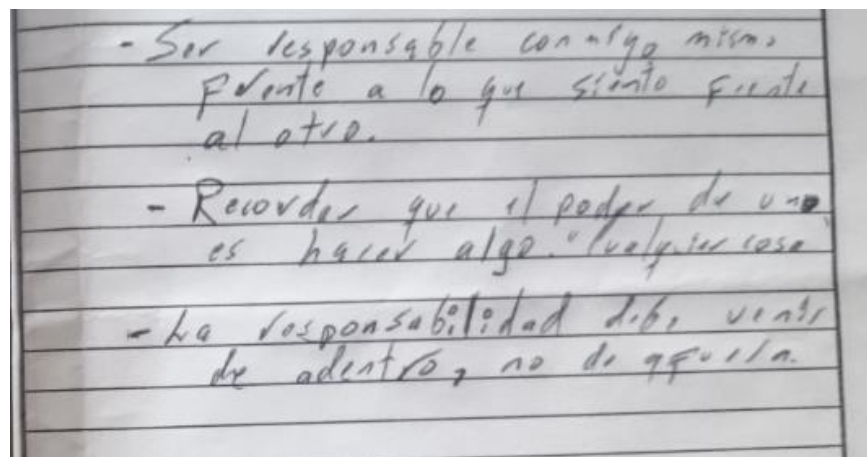 - Ser responsable conmigo mismo
frente a lo que siento frente
al otro.
- Recorder que el poder de uno
es hacer algo. "Cualquier cosa"
- La responsabilidad debe venir
de adentro, no de afuera.